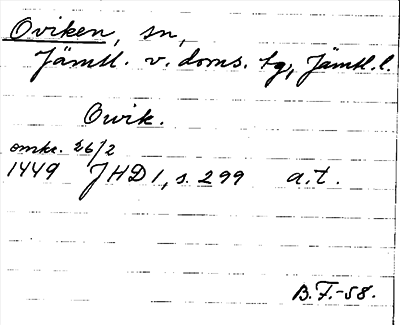 Oviken, sn,
Jämtl. v. doms. tg, Jämtl. l.
Owik.
omkr. 26/2
1449 JHD 1, s. 299 a.t.
B.F.-58.